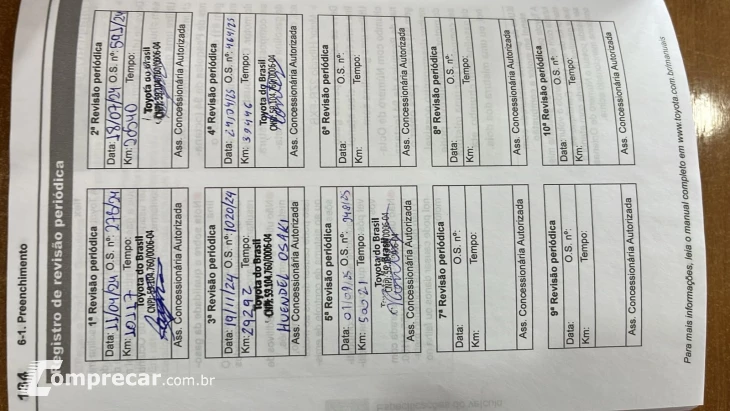 134
6-1. Preenchimento
Registro de revisão periódica
1ª Revisão periódica
Data: 11/04/24 O.S. nº: 278/24
Km: 10117 Tempo:
Toyota do Brasil
CNPJ: 59.104.760/0006-04
Ass. Concessionária Autorizada
2ª Revisão periódica
Data: 18/07/24 O.S. nº: 591/24
Km: 20040 Tempo:
Toyota do Brasil
Ass. Concessionária Autorizada
3ª Revisão periódica
Data: 19/11/24 O.S. nº: 1020/24
Km: 29292 Tempo:
Toyota do Brasil
CNPJ: 59.104.760/0006-04
HUENDEL OSAKI
Ass. Concessionária Autorizada
4ª Revisão periódica
Data: 24/04/25 O.S. nº: 464/25
Km: 39446 Tempo:
Toyota do Brasil
CNPJ: 59.104.760/0006-04
Ass. Concessionária Autorizada
5ª Revisão periódica
Data: 01/09/25 O.S. nº: 948/25
Km: 50021 Tempo:
Toyota do Brasil
Ass. Concessionária Autorizada
6ª Revisão periódica
Data: O.S. nº:
Km: Tempo:
Ass. Concessionária Autorizada
7ª Revisão periódica
Data: O.S. nº:
Km: Tempo:
Ass. Concessionária Autorizada
8ª Revisão periódica
Data: O.S. nº:
Km: Tempo:
Ass. Concessionária Autorizada
9ª Revisão periódica
Data: O.S. nº:
Km: Tempo:
Ass. Concessionária Autorizada
10ª Revisão periódica
Data: O.S. nº:
Km: Tempo:
Ass. Concessionária Autorizada
Para mais informações, leia o manual completo em www.toyota.com.br/manuais
Comprecar.com.br